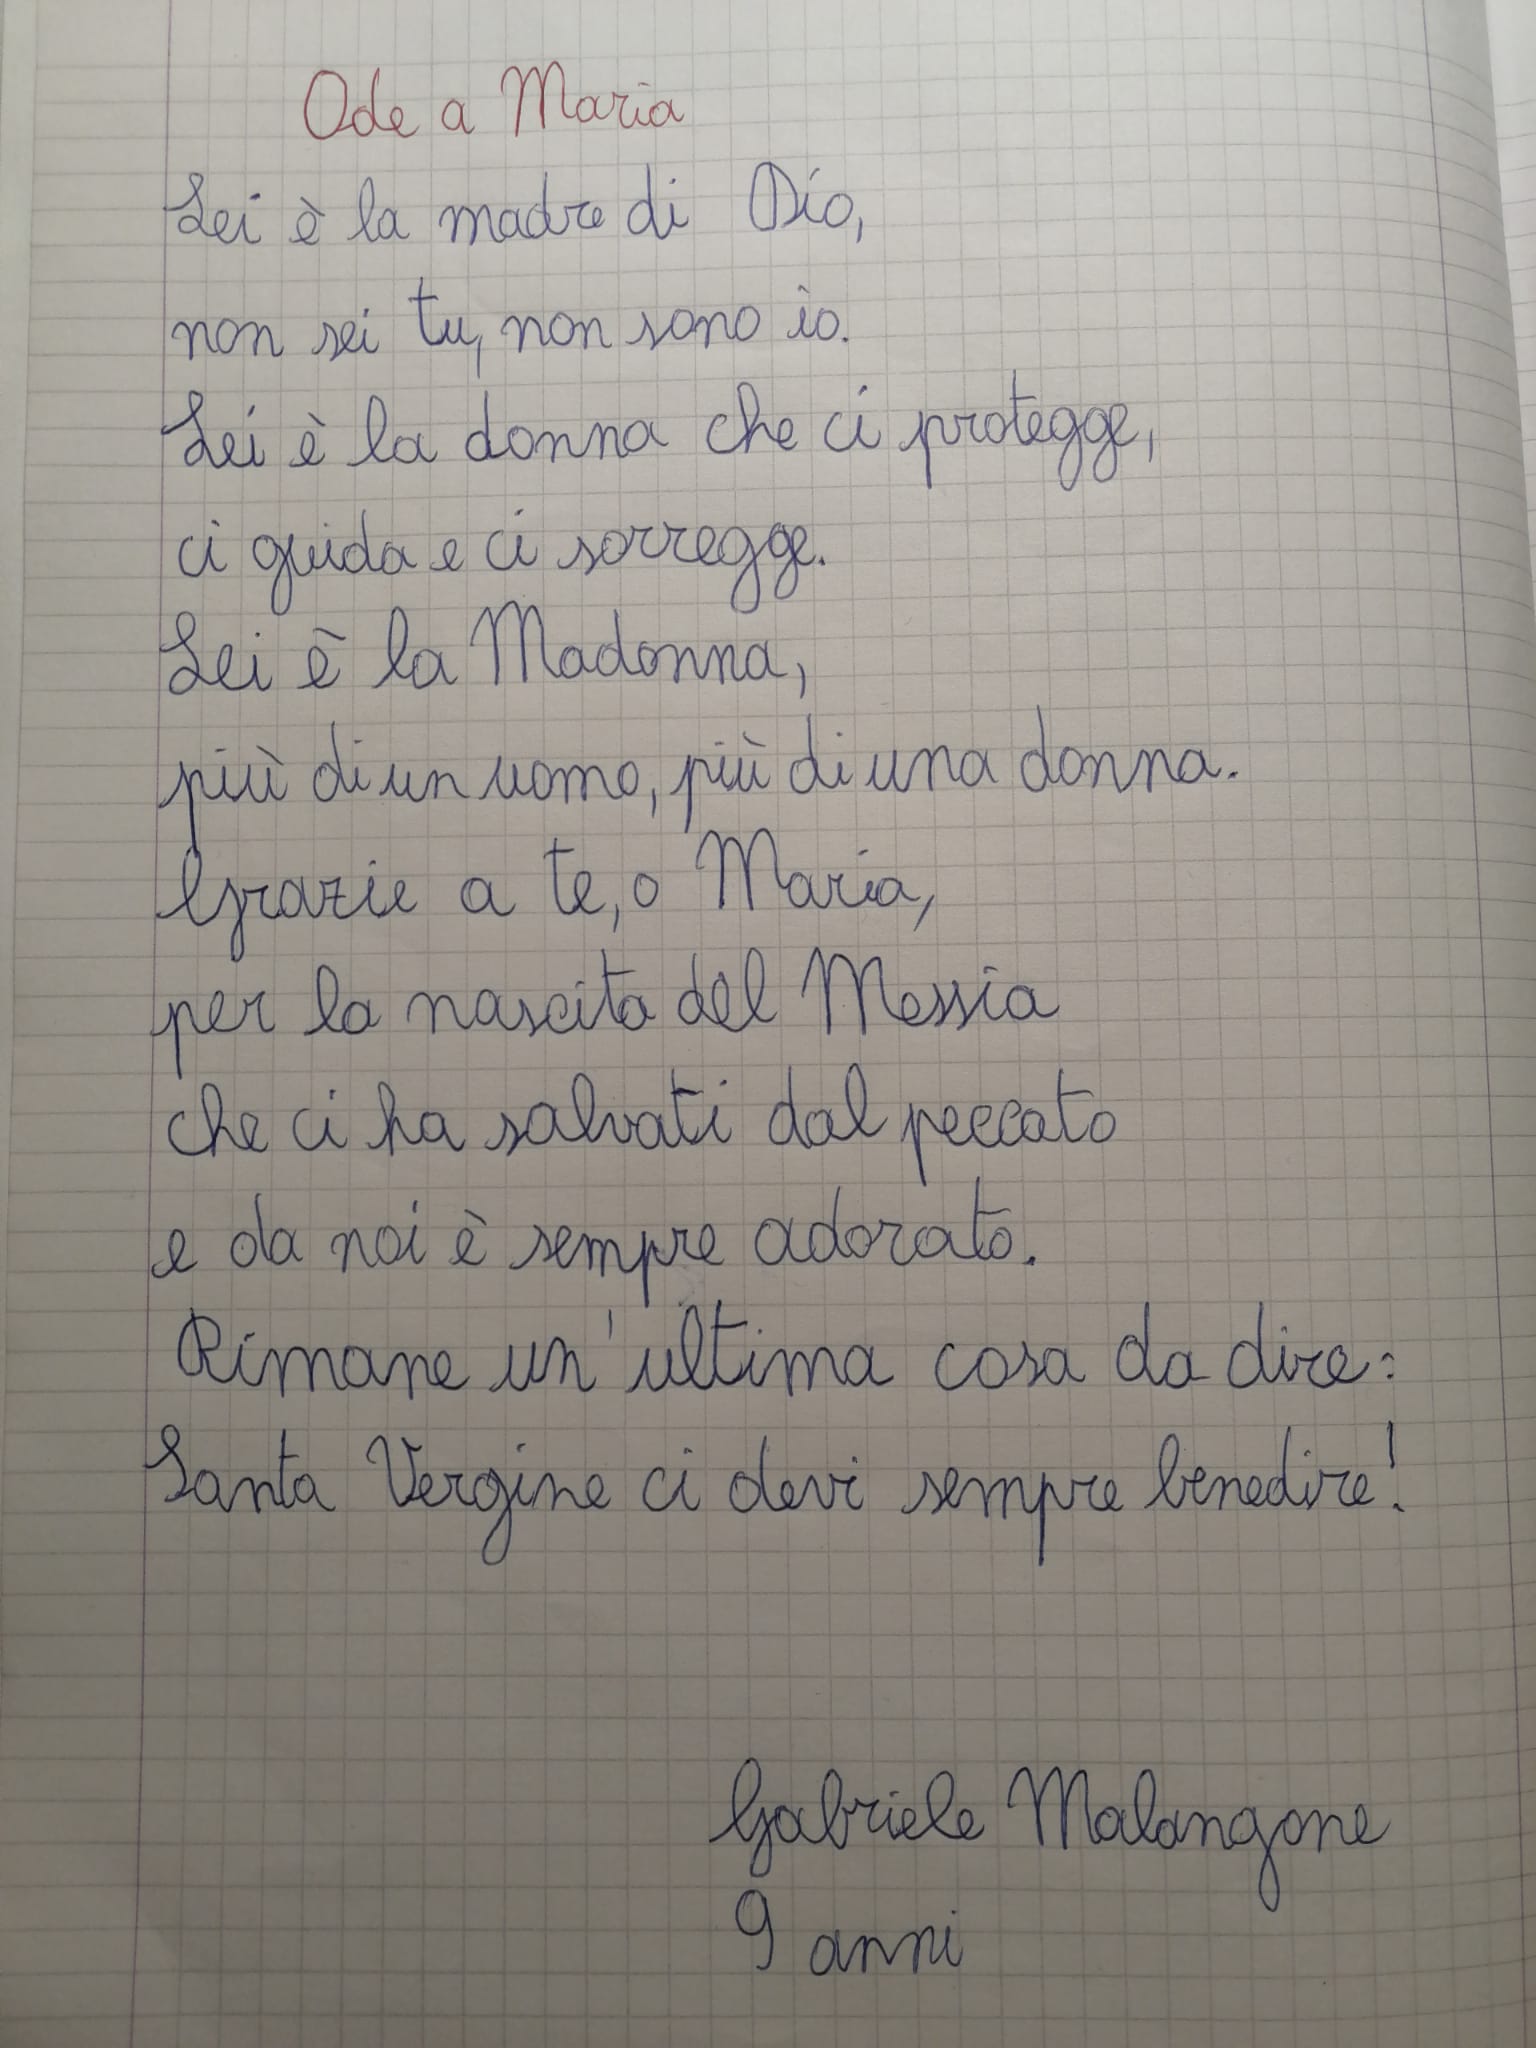 Ode a Maria
Lei è la madre di Dio,
non sei tu, non sono io.
Lei è la donna che ci protegge,
ci guida e ci sorregge.
Lei è la Madonna,
più di un uomo, più di una donna.
Grazie a te, o Maria,
per la nascita del Messia
che ci ha salvati dal peccato
e da noi è sempre adorato.
Rimane un'ultima cosa da dire:
Santa Vergine ci devi sempre benedire!
Gabriele Malangone
9 anni